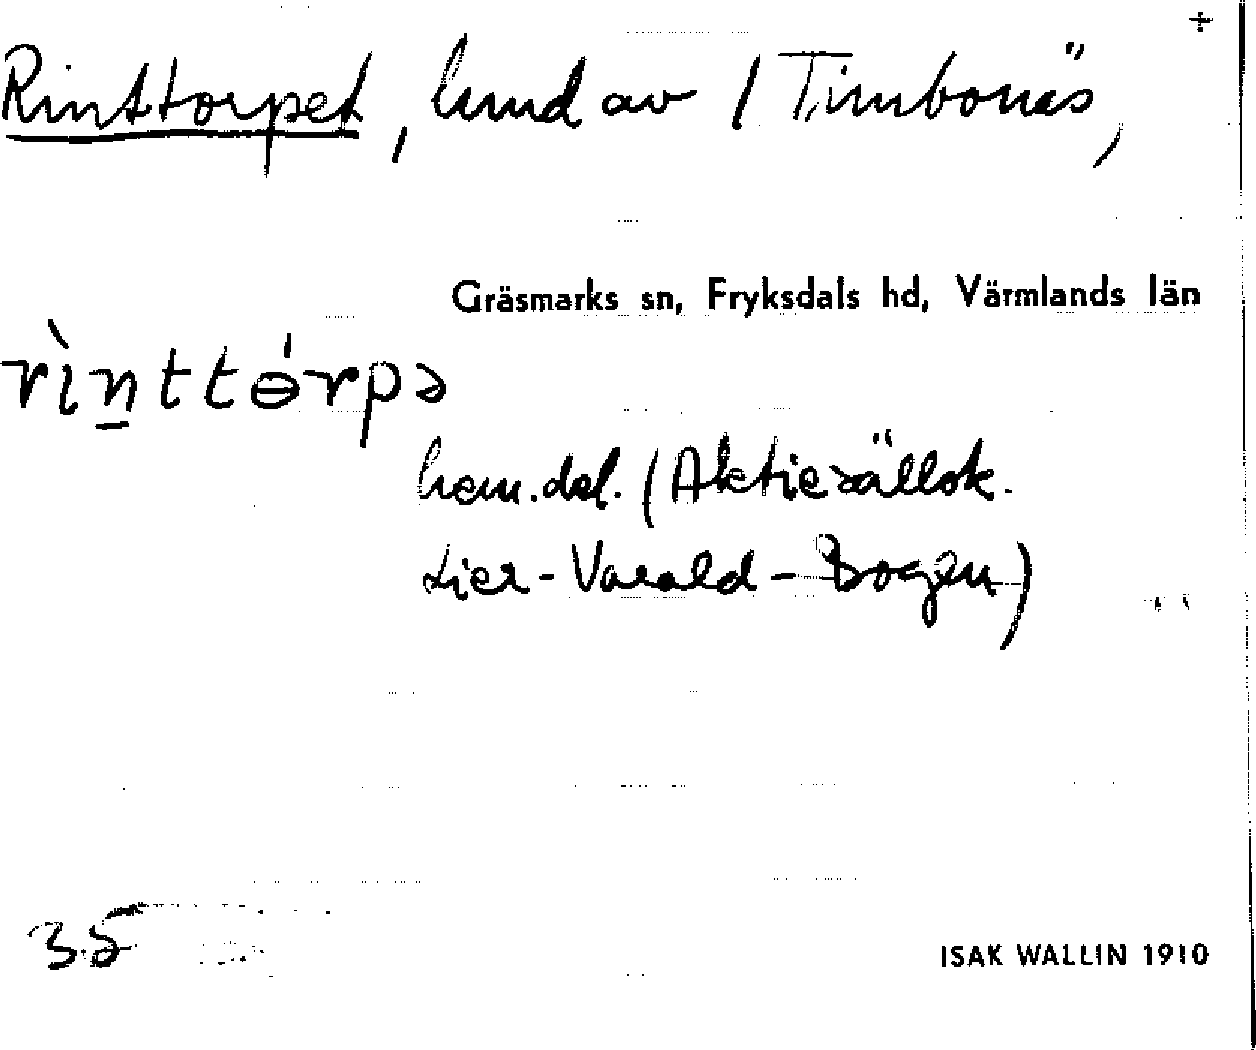 +
Rinttorpet, lund av / Timbonäs,
Gräsmarks sn, Fryksdals hd, Värmlands län
rìn̠ttɵ́rpə
hem.del. (Aktiesällsk.
Lier-Varald-Bogen)
35
ISAK WALLIN 1910